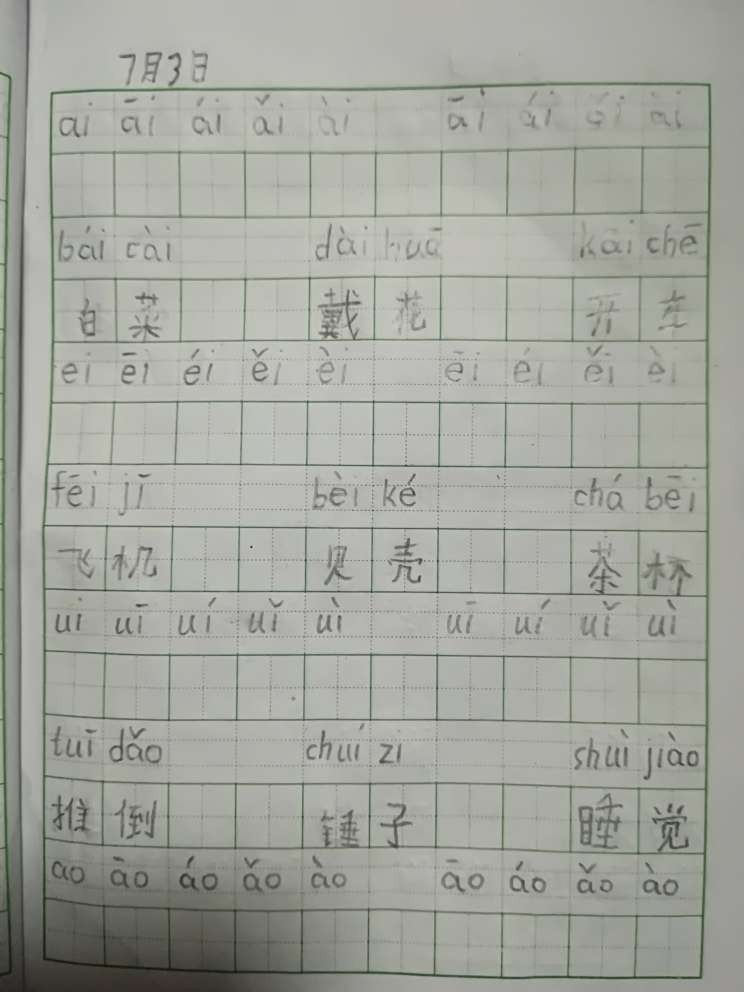 7月3日
ai āi ái ǎi ài āi ái ǎi ài
bái cài dài huā kāi chē
白菜 戴花 开车
ei ēi éi ěi èi ēi éi ěi èi
fēi jī bèi ké chá bēi
飞机 贝壳 茶杯
ui uī uí uǐ uì uī uí uǐ uì
tuī dǎo chuí zi shuì jiào
推倒 锤子 睡觉
ao āo áo ǎo ào āo áo ǎo ào